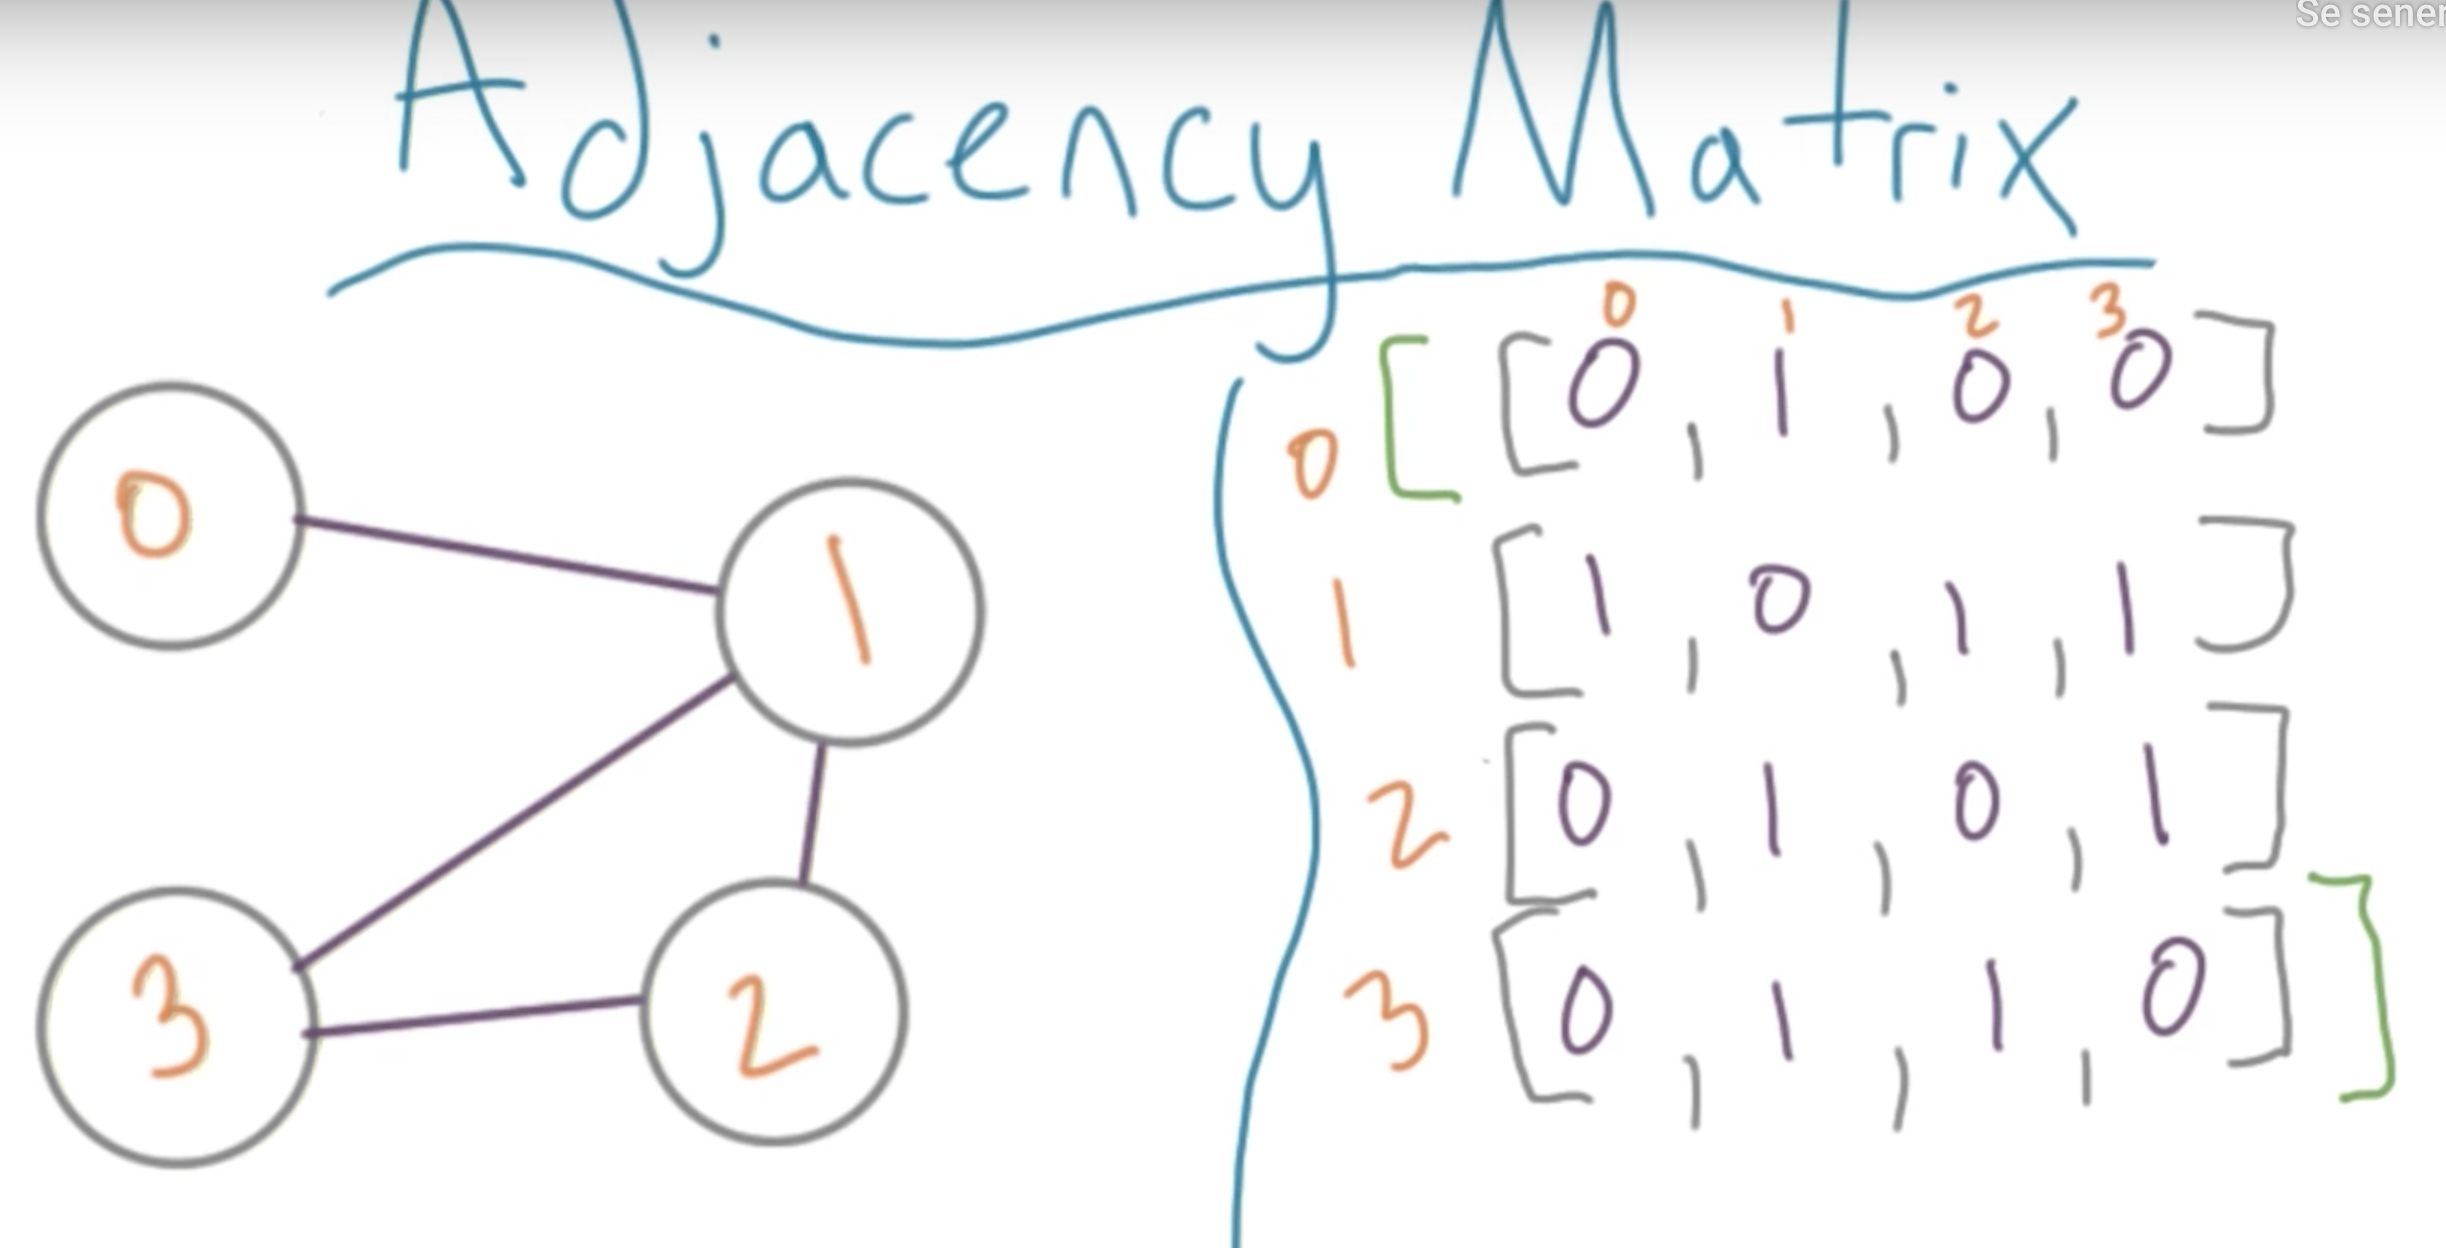 Se sener
Adjacency Matrix
0 1 2 3
0 [ [ 0 , 1 , 0 , 0 ]
1 [ 1 , 0 , 1 , 1 ]
2 [ 0 , 1 , 0 , 1 ]
3 [ 0 , 1 , 1 , 0 ] ]
0
1
3
2